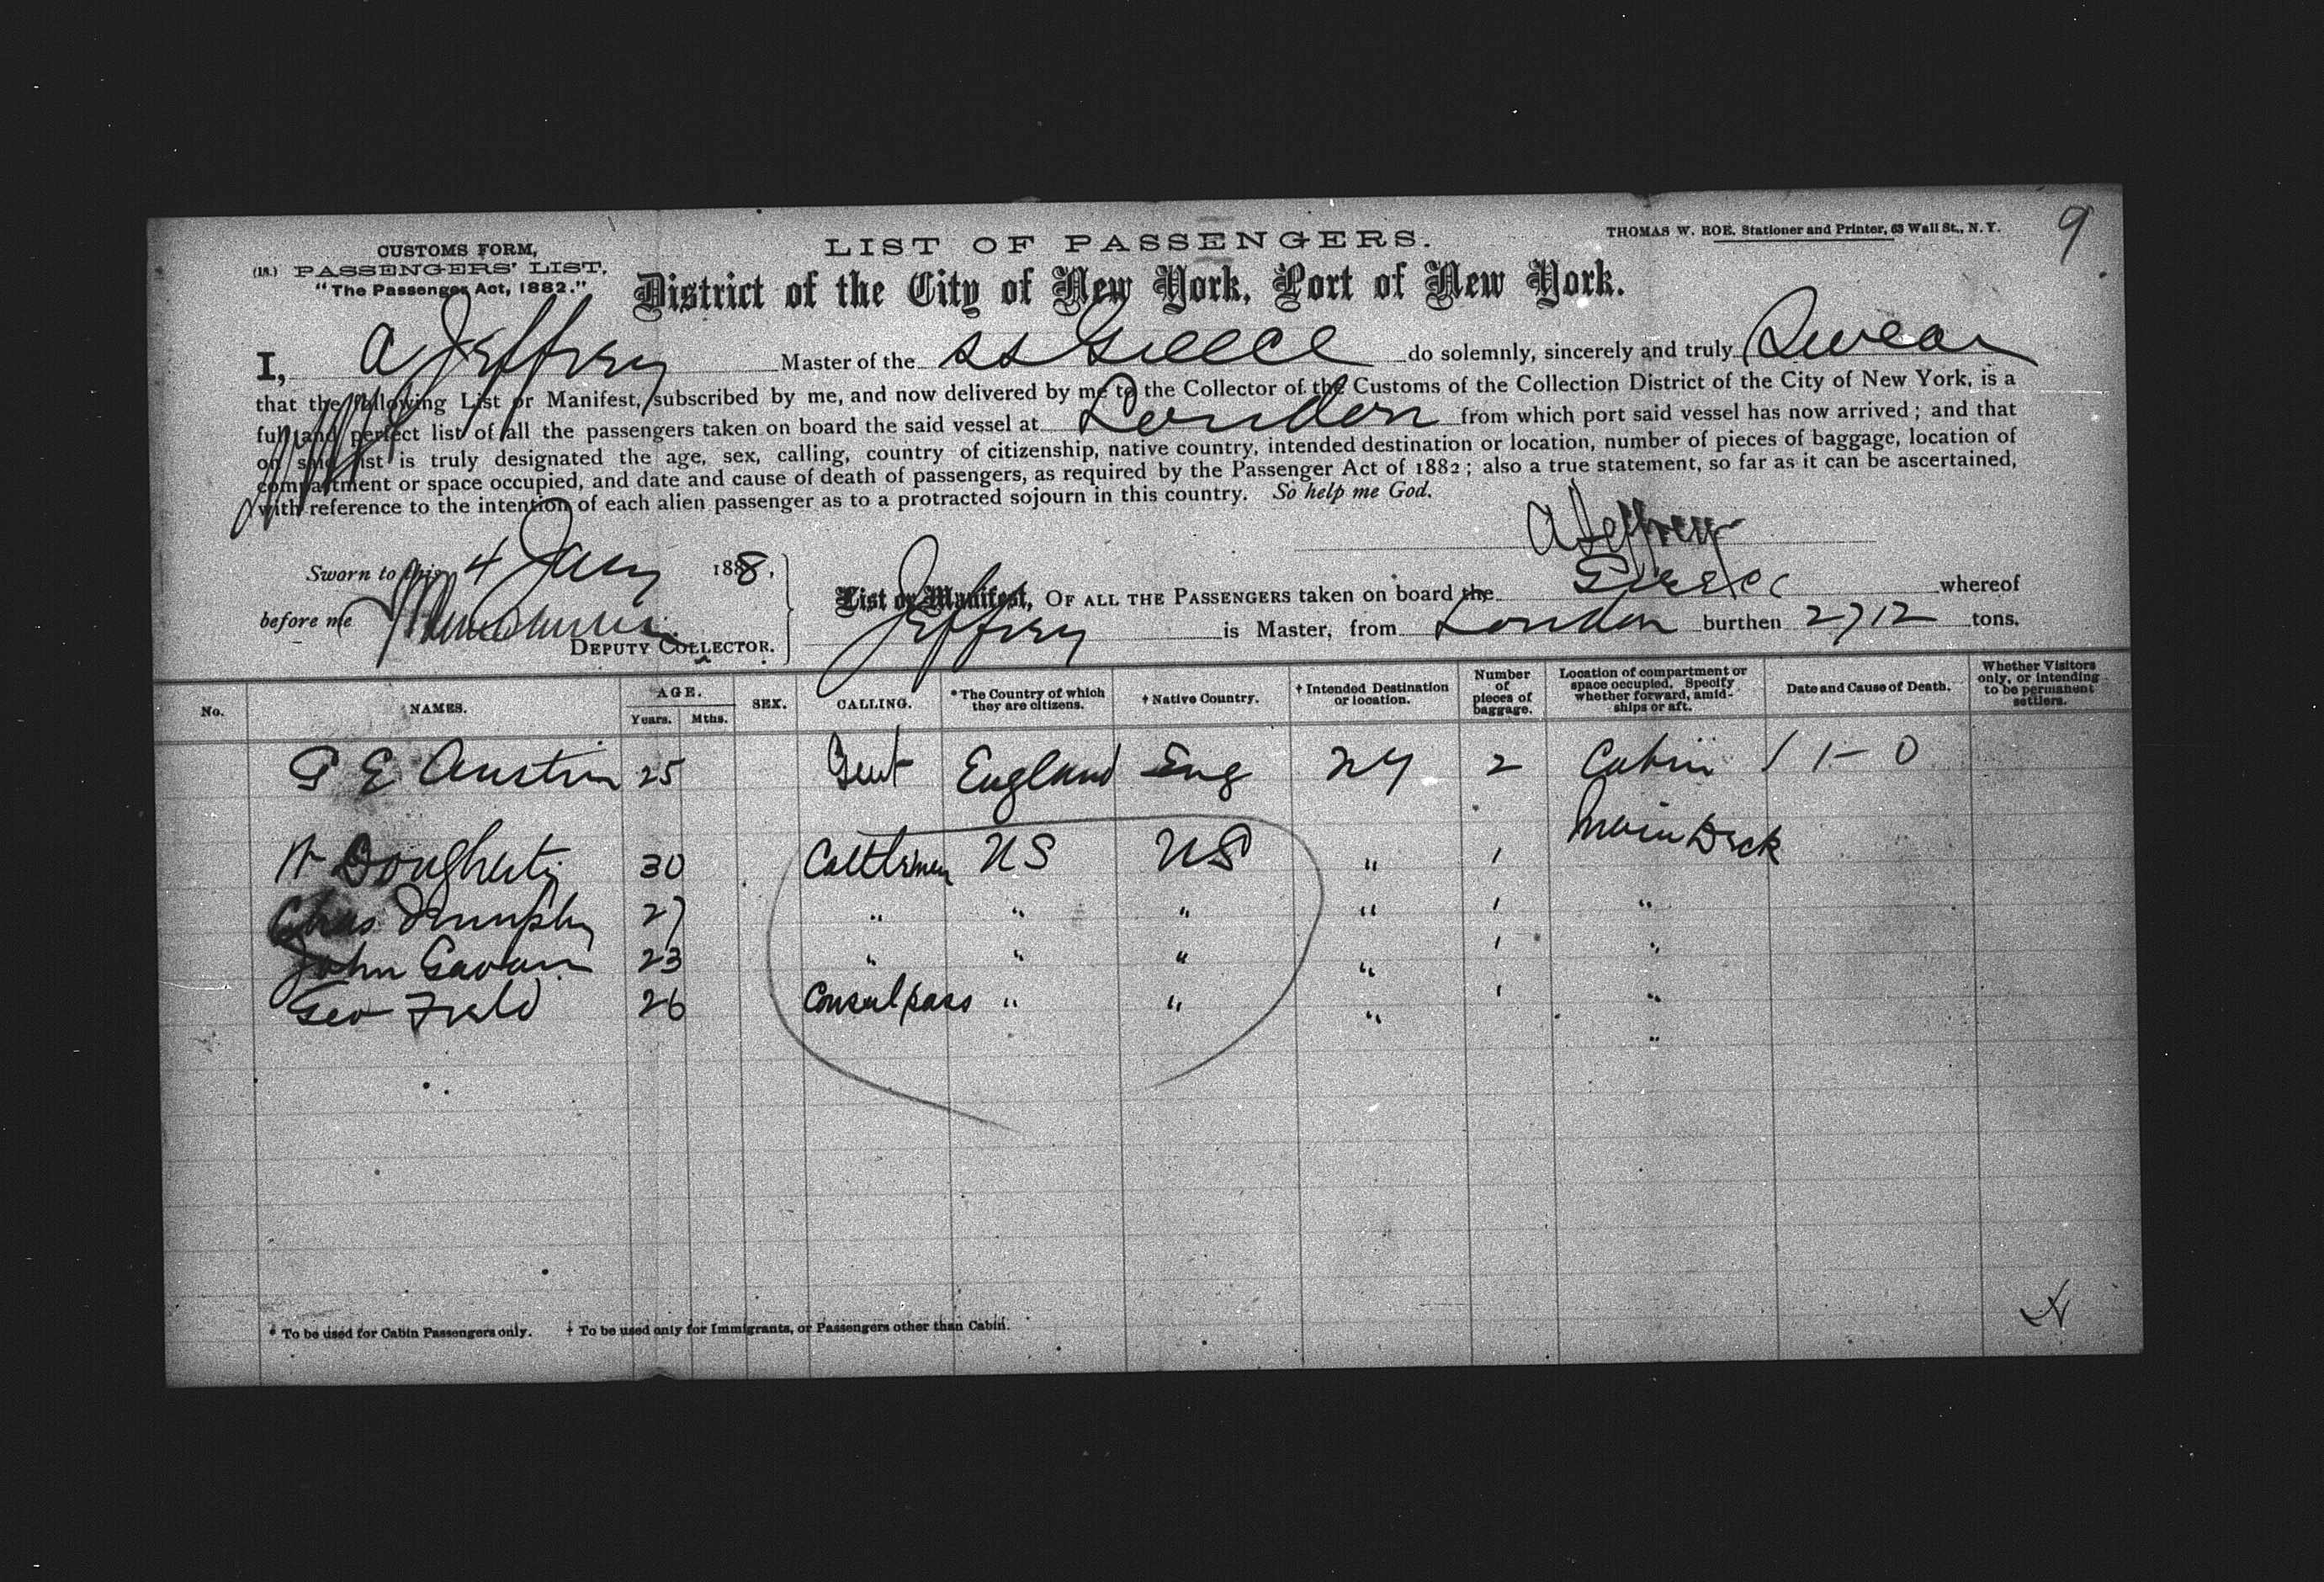 9
THOMAS W. ROE, Stationer and Printer, 63 Wall St., N. Y.
CUSTOMS FORM,
(18.) PASSENGERS' LIST.
"The Passenger Act, 1882."
LIST OF PASSENGERS.
District of the City of New York, Port of New York.
I, A Jeffrey Master of the SS Greece do solemnly, sincerely and truly Swear
that the following List or Manifest, subscribed by me, and now delivered by me to the Collector of the Customs of the Collection District of the City of New York, is a
full and perfect list of all the passengers taken on board the said vessel at London from which port said vessel has now arrived; and that
on said list is truly designated the age, sex, calling, country of citizenship, native country, intended destination or location, number of pieces of baggage, location of
compartment or space occupied, and date and cause of death of passengers, as required by the Passenger Act of 1882; also a true statement, so far as it can be ascertained,
with reference to the intention of each alien passenger as to a protracted sojourn in this country. So help me God.
A Jeffrey
Sworn to this 4 Jany 1888,
before me
DEPUTY COLLECTOR.
List or Manifest, OF ALL THE PASSENGERS taken on board the Greece whereof
Jeffrey is Master, from London burthen 2712 tons.
No. NAMES. AGE. Years. Mths. SEX. CALLING. * The Country of which they are citizens. † Native Country. † Intended Destination or location. Number of pieces of baggage. Location of compartment or space occupied. Specify whether forward, amidships or aft. Date and Cause of Death. Whether Visitors only, or intending to be permanent settlers.
P E Austin 25 Gent England Eng NY 2 Cabin / 1 - 0
Main Deck
W Dougherty 30 Cattlemen US US " 1
Chas Murphy 27 " " " " 1 "
John Gavan 23 " " " " 1 "
Geo Field 26 Consul pass " " " 1 "
"
* To be used for Cabin Passengers only. † To be used only for Immigrants, or Passengers other than Cabin.